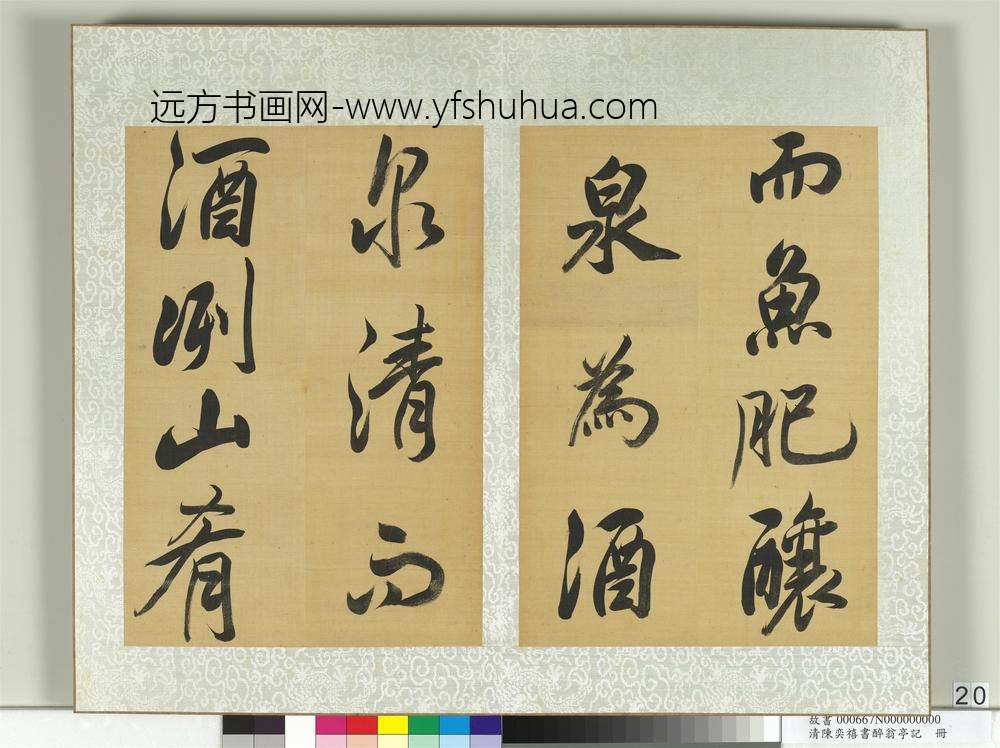 远方书画网-www.yfshuhua.com
而魚肥釀
泉為酒
泉清而
酒洌山肴
20
故書 000667N000000000
清陳奕禧書醉翁亭記 冊